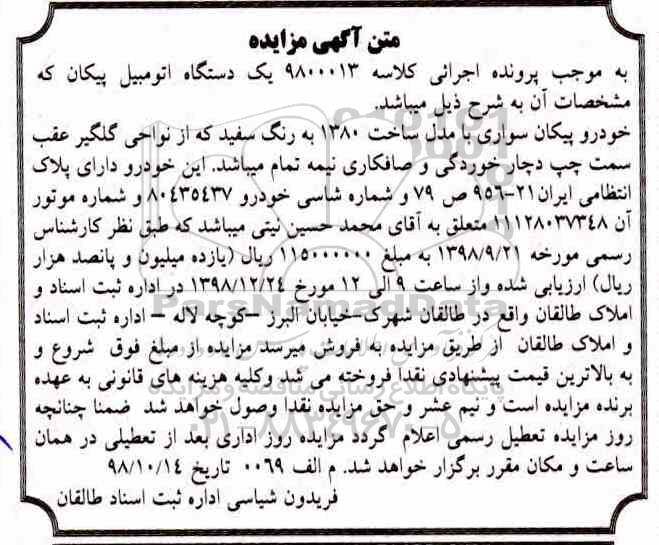 متن آگهی مزایده
به موجب پرونده اجرائی کلاسه ۹۸۰۰۰۱۳ یک دستگاه اتومبیل پیکان که
مشخصات آن به شرح ذیل میباشد.
خودرو پیکان سواری با مدل ساخت ۱۳۸۰ به رنگ سفید که از نواحی گلگیر عقب
سمت چپ دچار خوردگی و صافکاری نیمه تمام میباشد. این خودرو دارای پلاک
انتظامی ایران ۲۱-۹۵۶ ص ۷۹ و شماره شاسی خودرو ۸۰۴۳۵۴۳۷ و شماره موتور
آن ۱۱۱۲۸۰۳۷۳۴۸ متعلق به آقای محمد حسین نیتی میباشد که طبق نظر کارشناس
رسمی مورخه ۱۳۹۸/۹/۲۱ به مبلغ ۱۱۵۰۰۰۰۰۰ ریال (یازده میلیون و پانصد هزار
ریال) ارزیابی شده واز ساعت ۹ الی ۱۲ مورخ ۱۳۹۸/۱۲/۲۴ در اداره ثبت اسناد و
املاک طالقان واقع در طالقان شهرک-خیابان البرز -کوچه لاله - اداره ثبت اسناد
و املاک طالقان از طریق مزایده به فروش میرسد مزایده از مبلغ فوق شروع و
به بالاترین قیمت پیشنهادی نقدا فروخته می شد وکلیه هزینه های قانونی به عهده
برنده مزایده است و نیم عشر و حق مزایده نقدا وصول خواهد شد ضمنا چنانچه
روز مزایده تعطیل رسمی اعلام گردد مزایده روز اداری بعد از تعطیلی در همان
ساعت و مکان مقرر برگزار خواهد شد. م الف ۰۰۶۹ تاریخ ۹۸/۱۰/۱۴
فریدون شیاسی اداره ثبت اسناد طالقان
ParsNamadData
پایگاه اطلاع رسانی مناقصه و مزایده
۰۲۱-۸۸۳۴۹۶۷۰-۵